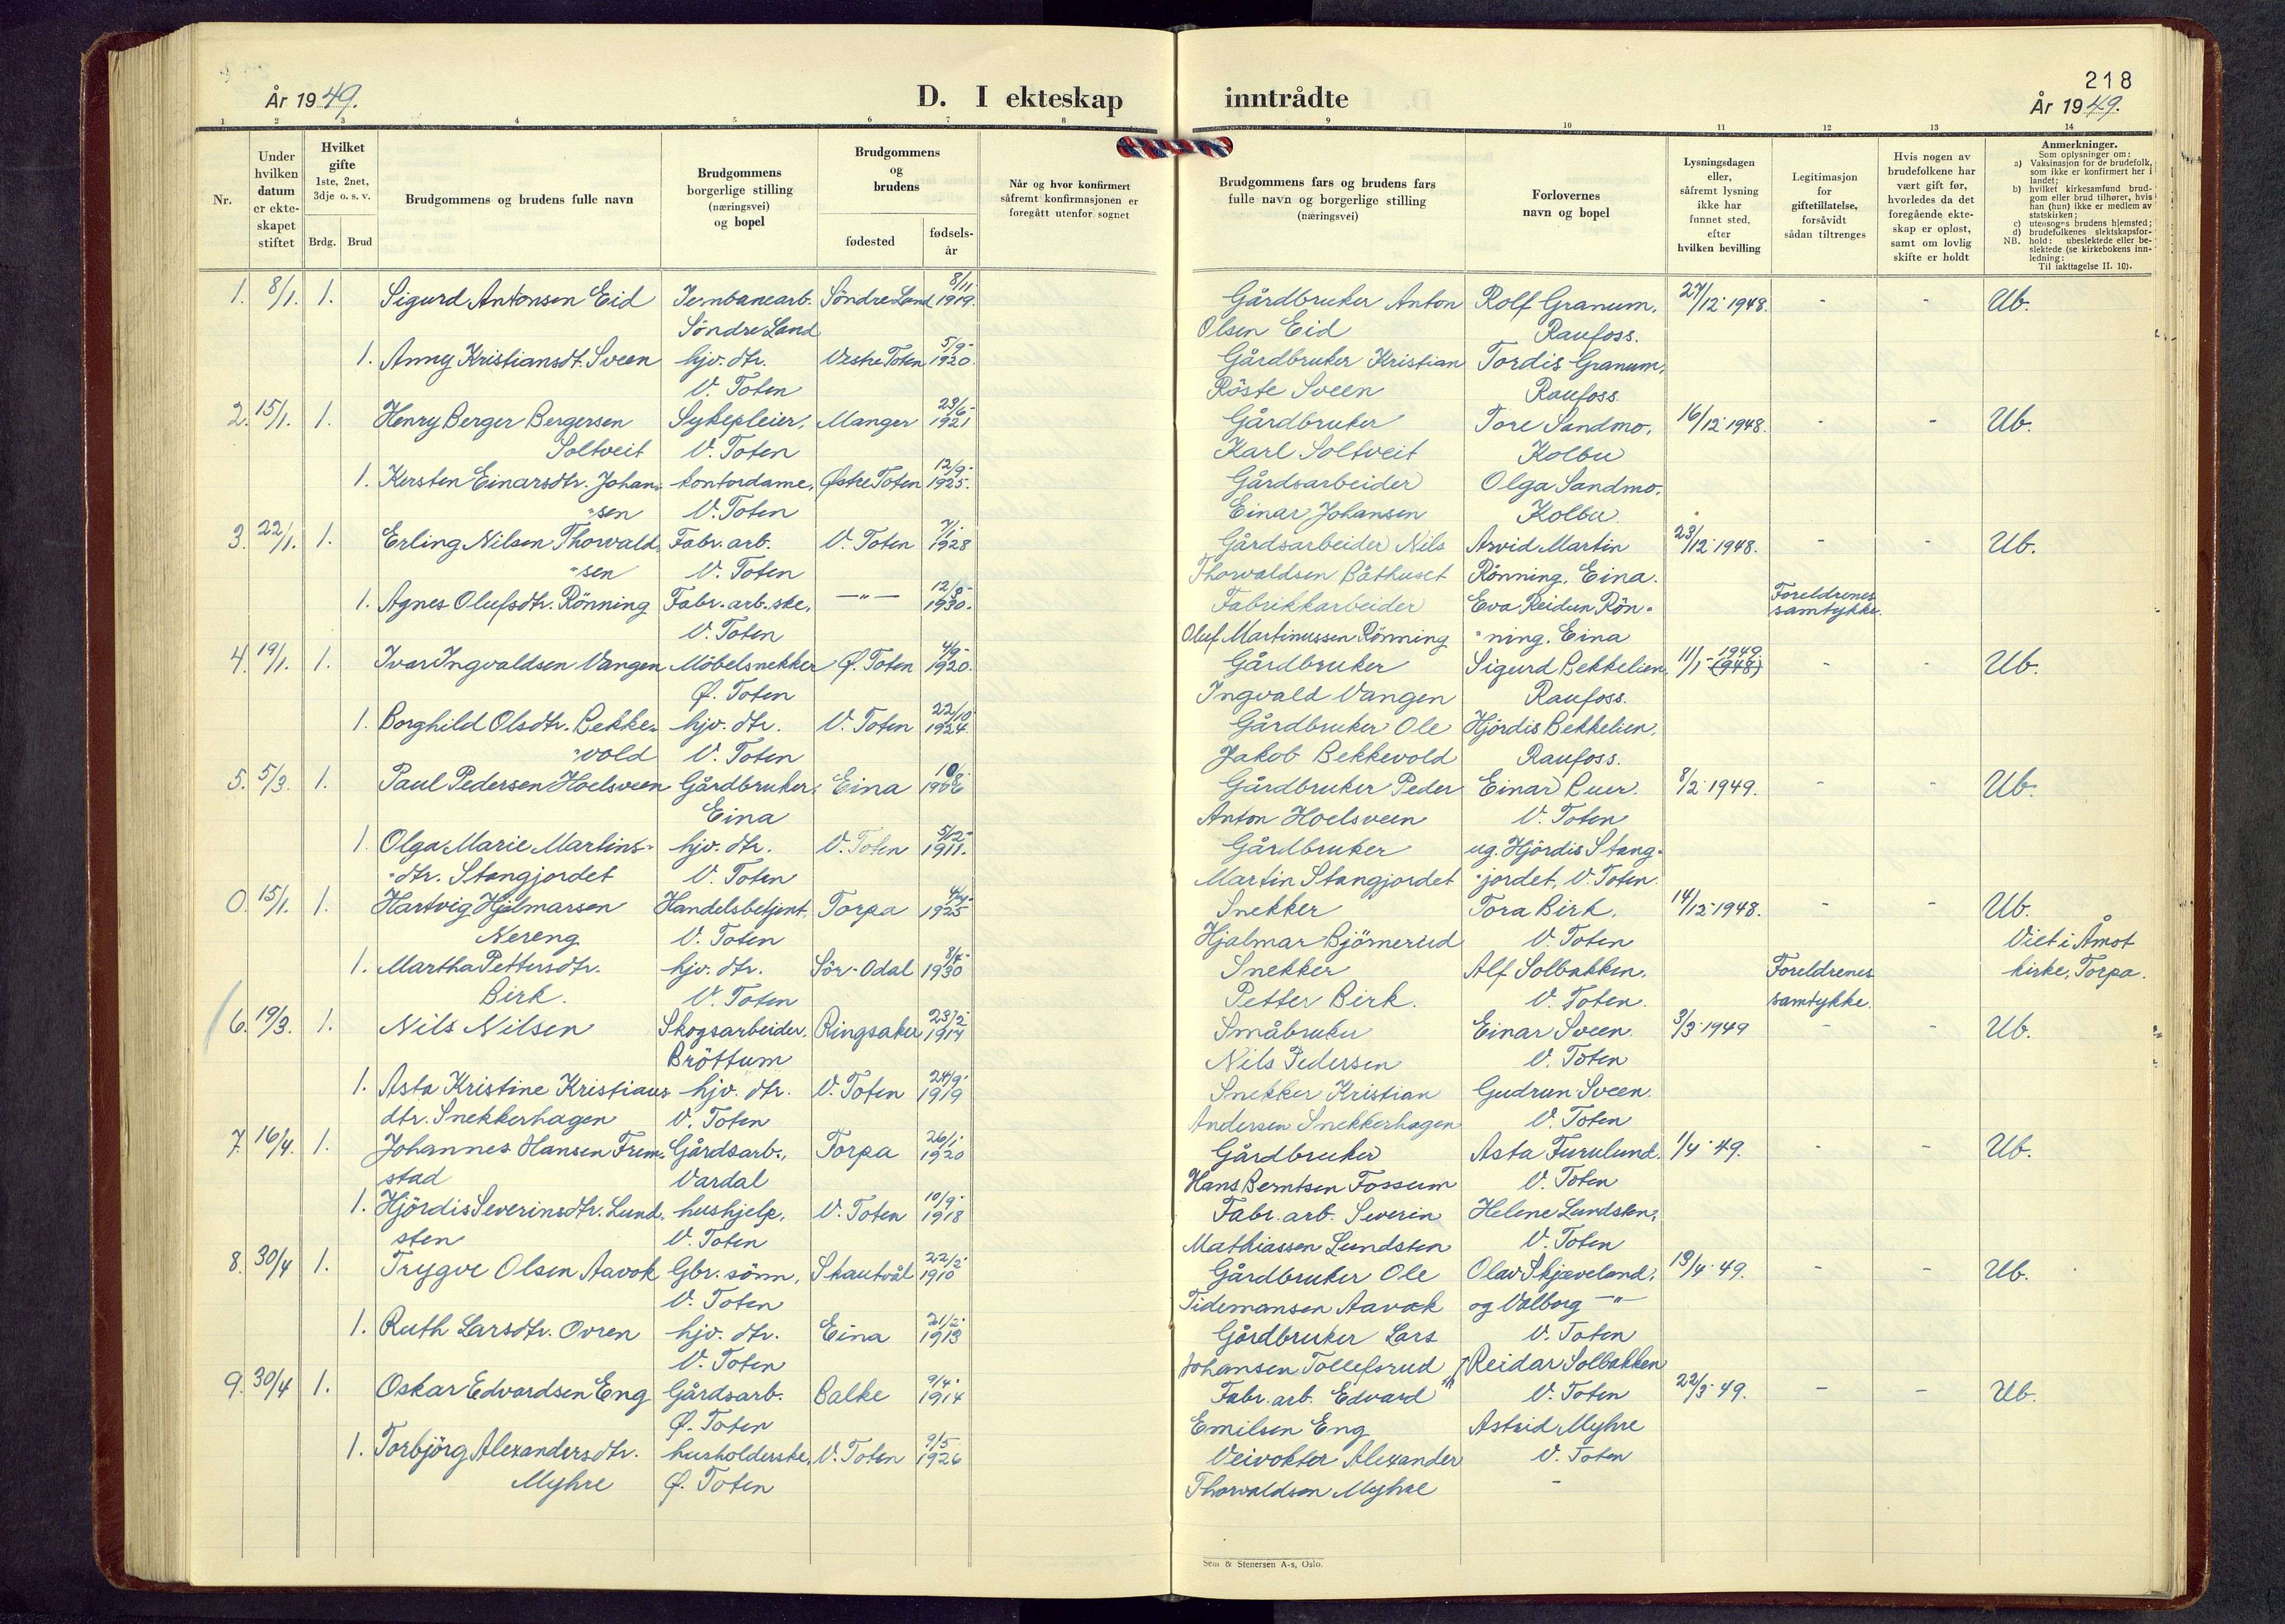 218
År 1949.
D. I ekteskap
inntrådte
År 1949.
1 2 3 4 5 6 7 8 9 10 11 12 13 14
Nr.
Under hvilken datum er ekteskapet stiftet
Hvilket gifte 1ste, 2net, 3dje o. s. v.
Brdg. Brud
Brudgommens og brudens fulle navn
Brudgommens borgerlige stilling (næringsvei) og bopel
Brudgommens og brudens
fødested
fødsels-år
Når og hvor konfirmert såfremt konfirmasjonen er foregått utenfor sognet
Brudgommens fars og brudens fars fulle navn og borgerlige stilling (næringsvei)
Forlovernes navn og bopel
Lysningsdagen eller, såfremt lysning ikke har funnet sted, efter hvilken bevilling
Legitimasjon for giftetillatelse, forsåvidt sådan tiltrenges
Hvis nogen av brudefolkene har vært gift før, hvorledes da det foregående ekteskap er opløst, samt om lovlig skifte er holdt
Anmerkninger.
Som oplysninger om:
a) Vaksinasjon for de brudefolk, som ikke er konfirmert her i landet;
b) hvilket kirkesamfund brudgom eller brud tilhører, hvis han (hun) ikke er medlem av statskirken;
c) utensogns brudens hjemsted;
d) brudefolkenes slektskapsforhold: ubeslektede eller beslektede (se kirkebokens innledning:
NB. Til iakttagelse II. 10).
1. 8/1. 1. Sigurd Antonsen Eid Jernbanearb. Söndre Land 8/11 1919. Gårdbruker Anton Rolf Granum, 27/12 1948. - - Ub.
Söndre Land Olsen Eid Raufoss.
1. Anny Kristiansdt. Sveen hjv. dtr. Vestre Toten 5/9 1920. Gårdbruker Kristian Tordis Granum,
V. Toten Röste Sveen Raufoss
2. 15/1. 1. Henry Berger Bergersen Sykepleier, Manger 23/6 1921 Gårdbruker Tore Sandmo, 16/12 1948. - - Ub.
Soltveit V. Toten Karl Soltveit Kolbu
1. Kersten Einarsdtr. Johan- kontordame, Østre Toten 12/9 1925. Gårdsarbeider Olga Sandmo,
sen V. Toten Einar Johansen Kolbu.
3. 22/1. 1. Erling Nilsen Thorvald- Fabr. arb. V. Toten 7/1 1928 Gårdsarbeider Nils Arvid Martin 23/12 1948. - - Ub.
sen V. Toten Thorvaldsen Båthuset Rönning, Eina.
1. Agnes Olufsdtr. Rönning Fabr. arb. ske, —"— 12/8 1930. Fabrikkarbeider Eva Reidun Rön- Foreldrenes samtykke.
V. Toten Oluf Martinussen Rönning ning. Eina
4. 19/1. 1. Ivar Ingvaldsen Vangen Möbelsnekker Ø. Toten 4/9 1920. Gårdbruker Sigurd Bekkelien, 11/1 1949. (948) - - Ub.
Ø. Toten Ingvald Vangen Raufoss.
1. Borghild Olsdtr. Bekke- hjv. dtr. V. Toten 22/10 1924. Gårdbruker Ole Hjördis Bekkelien,
vold V. Toten Jakob Bekkevold Raufoss.
5. 5/3. 1. Paul Pedersen Hoelsveen Gårdbruker, Eina Gårdbruker Peder Einar Buer. 8/2 1949. - - Ub.
Eina Anton Hoelsveen V. Toten
1. Olga Marie Martins- hjv. dtr. V. Toten 5/12 1911. Gårdbruker ug. Hjördis Stang-
dtr. Stangjordet V. Toten Martin Stangjordet jordet, V. Toten.
0. 15/1. 1. Hartvig Hjelmarsen Handelsbetjent, Torpa 1925 Snekker Tora Birk, 14/12 1948. - - Ub.
Nereng V. Toten Hjalmar Björnerud V. Toten Viet i Åmot
1. Martha Pettersdtr. hjv. dtr. Sör-Odal 8/4 1930 Snekker Alf Solbakken, Foreldrenes kirke, Torpa.
Birk. V. Toten Petter Birk. V. Toten. samtykke.
6. 19/3. 1. Nils Nilsen Skogsarbeider, Ringsaker 23/2 1914 Småbruker Einar Sveen. 3/3 1949 - - Ub.
Bröttum Nils Pedersen V. Toten
1. Asta Kristine Kristians hjv. dtr. V. Toten 24/9 1919 Snekker Kristian Gudrun Sveen.
dtr. Snekkerhagen V. Toten Andersen Snekkerhagen V. Toten
7. 16/4. 1. Johannes Hansen Frem- Gårdsarb., Torpa 26/1 1920 Gårdbruker Asta Furulund. 1/4 49. - - Ub.
stad Vardal Hans Berntsen Fossum V. Toten
1. Hjördis Severinsdtr. Lund- hushjelp, V. Toten 10/9 1918 Fabr. arb. Severin Helene Lundsten,
sten V. Toten Mathiassen Lundsten V. Toten
8. 30/4 1. Trygve Olsen Aavok Gbr. sönn, Skautvål 22/2 1910 Gårdbruker Ole Olav Skjæveland, 19/4 49. - - Ub.
V. Toten Tidemansen Aavok og Valborg —"—
1. Ruth Larsdtr. Ovren hjv. dtr. Eina 21/2 1913 Gårdbruker Lars V. Toten
V. Toten Johansen Tollefsrud Reidar Solbakken
9. 30/4 1. Oskar Edvardsen Eng Gårdsarb. Balke 9/4 1914 Fabr. arb. Edvard V. Toten 22/3 49. - - Ub.
Ø. Toten Emilsen Eng Astrid Myhre
1. Torbjörg Alexandersdtr. husholderske, V. Toten 9/5 1926 Veivokter Alexander V. Toten
Myhre Ø. Toten Thorvaldsen Myhre -
Sem & Stenersen A-s, Oslo.